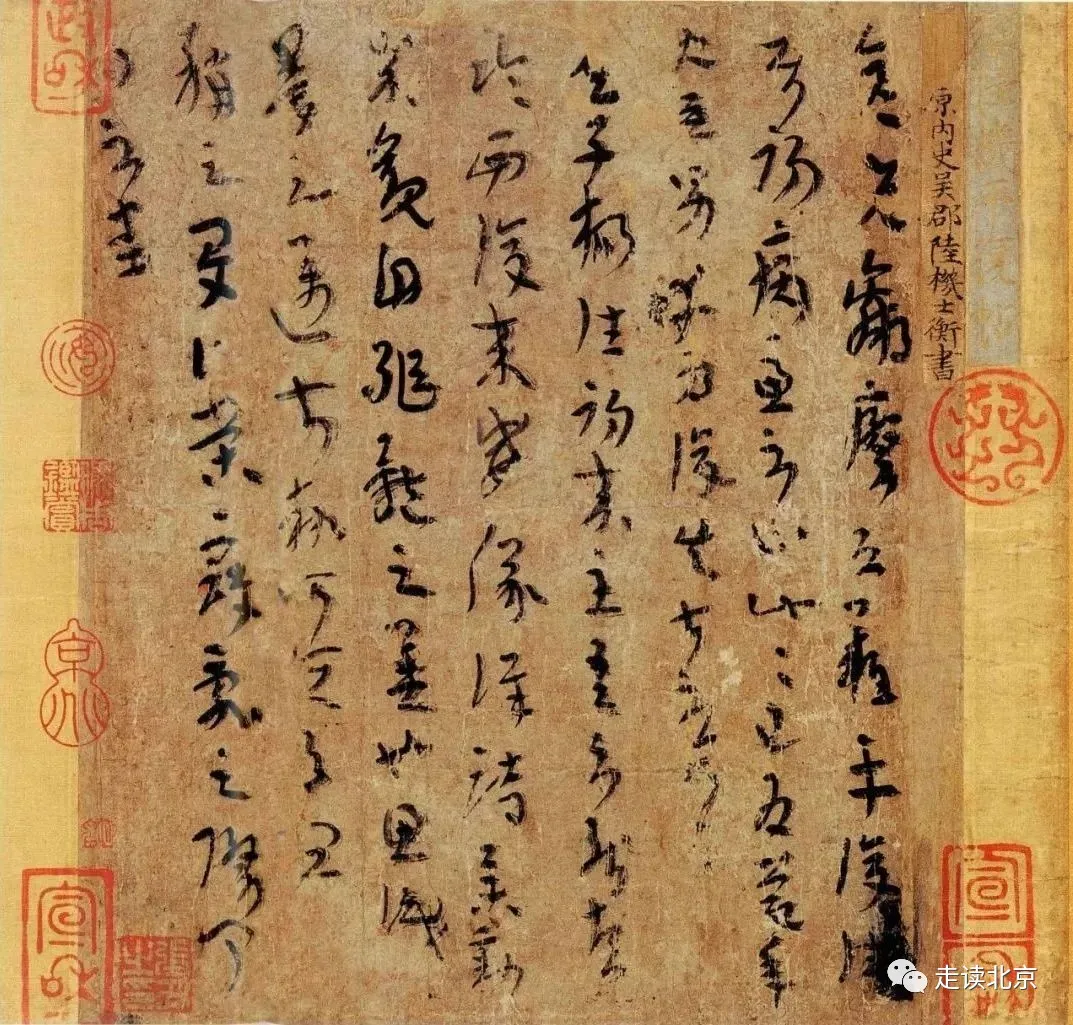 原内史吳郡陸機士衡書
彦先羸瘵恐難平復往
屬初病慮不止此〻已為慶承
使唯男幸為復失前憂耳
吳子楊往初來主吾不能盡
臨西復來威儀詳跱舉動
成觀自軀體之美也思識
量之邁前執所恒有宜
稱之夏伯榮寇亂之際聞
問不悉
政和
宣和
宣和
走读北京